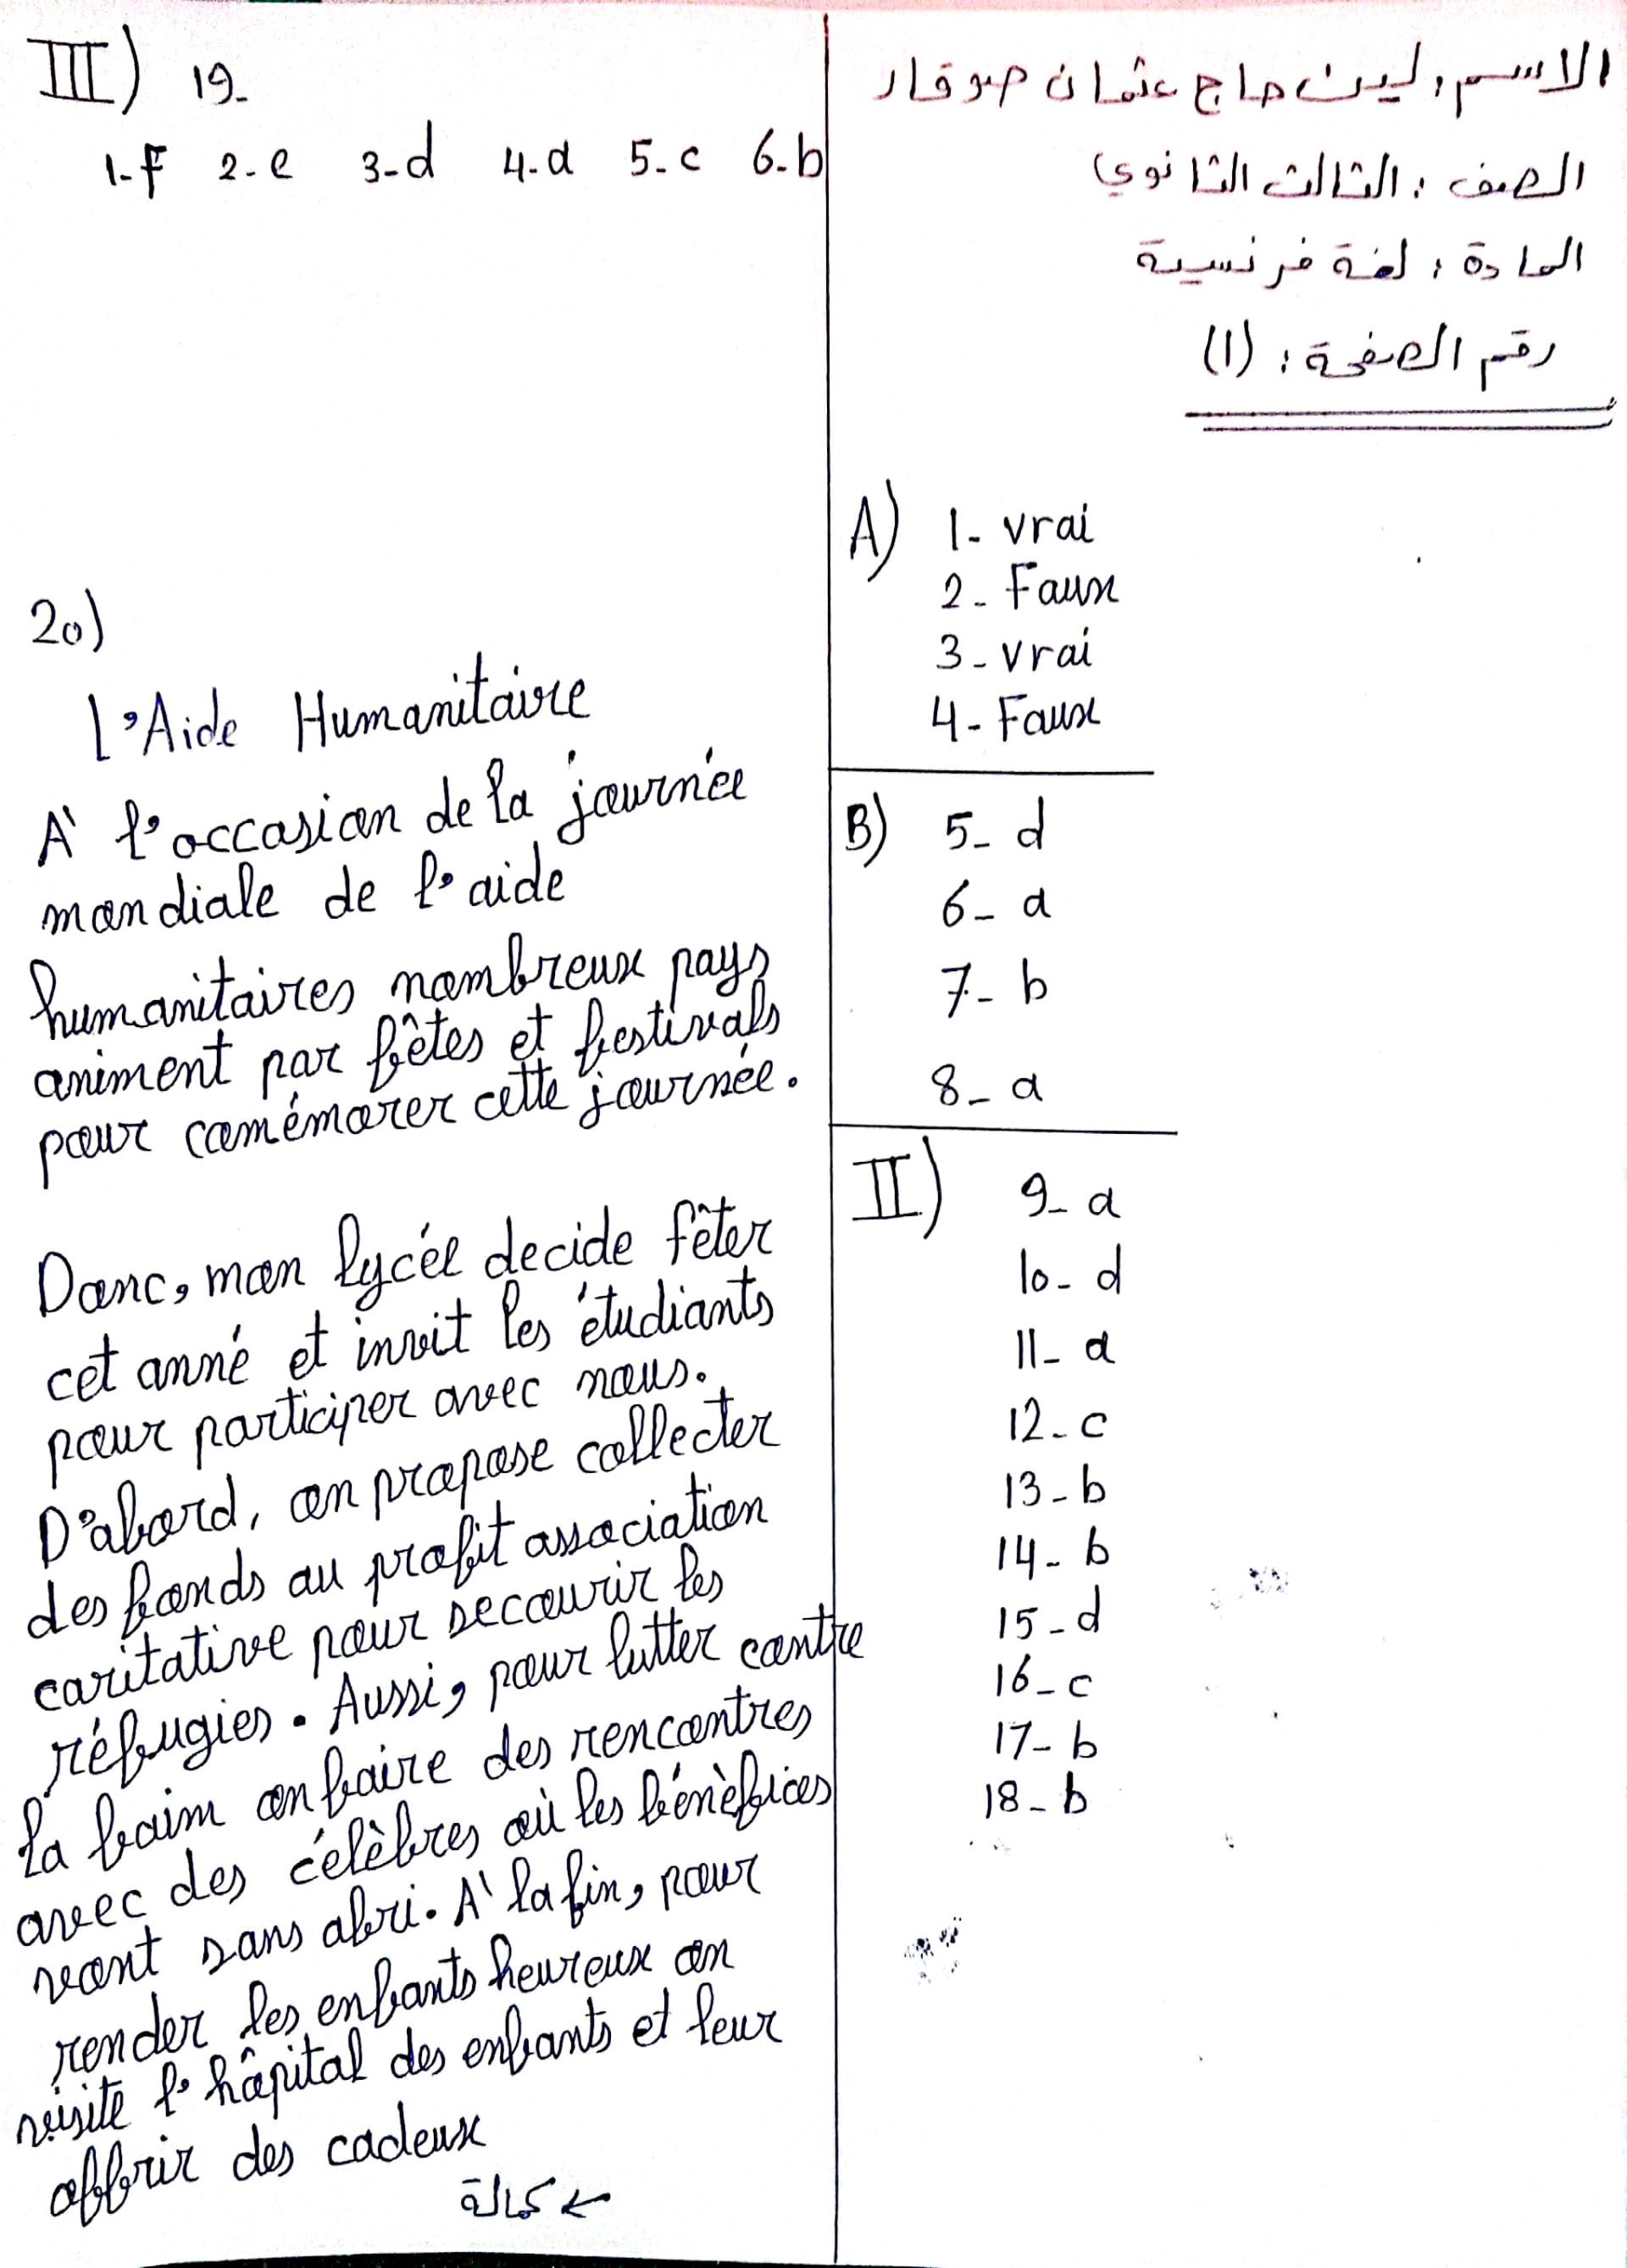 الاسم: لين حاج عثمان صوقار
الصف: الثالث الثانوي
المادة: لغة فرنسية
رقم الصفحة: (1)
A) 1- vrai
2- Faux
3- vrai
4- Faux
B) 5- d
6- a
7- b
8- a
II) 9- a
10- d
11- a
12- c
13- b
14- b
15- d
16- c
17- b
18- b
III) 19-
1-f 2-e 3-d 4-a 5-c 6-b
20)
l'Aide Humanitaire
A' l'occasion de la journée
mondiale de l'aide
humanitaires nombreux pays
animent par fêtes et festivals
pour comémorer cette journée.
Donc, mon lycée decide fêter
cet anné et invit les étudiants
pour participer avec nous.
D'abord, on propose collecter
des fonds au profit association
caritative pour secourir les
réfugies. Aussi, pour lutter contre
la faim on faire des rencontres
avec des célèbres où les bénèfices
vont sans abri. A' la fin, pour
render les enfants heureux on
visite l'hôpital des enfants et leur
offrir des cadeux
← كمالة